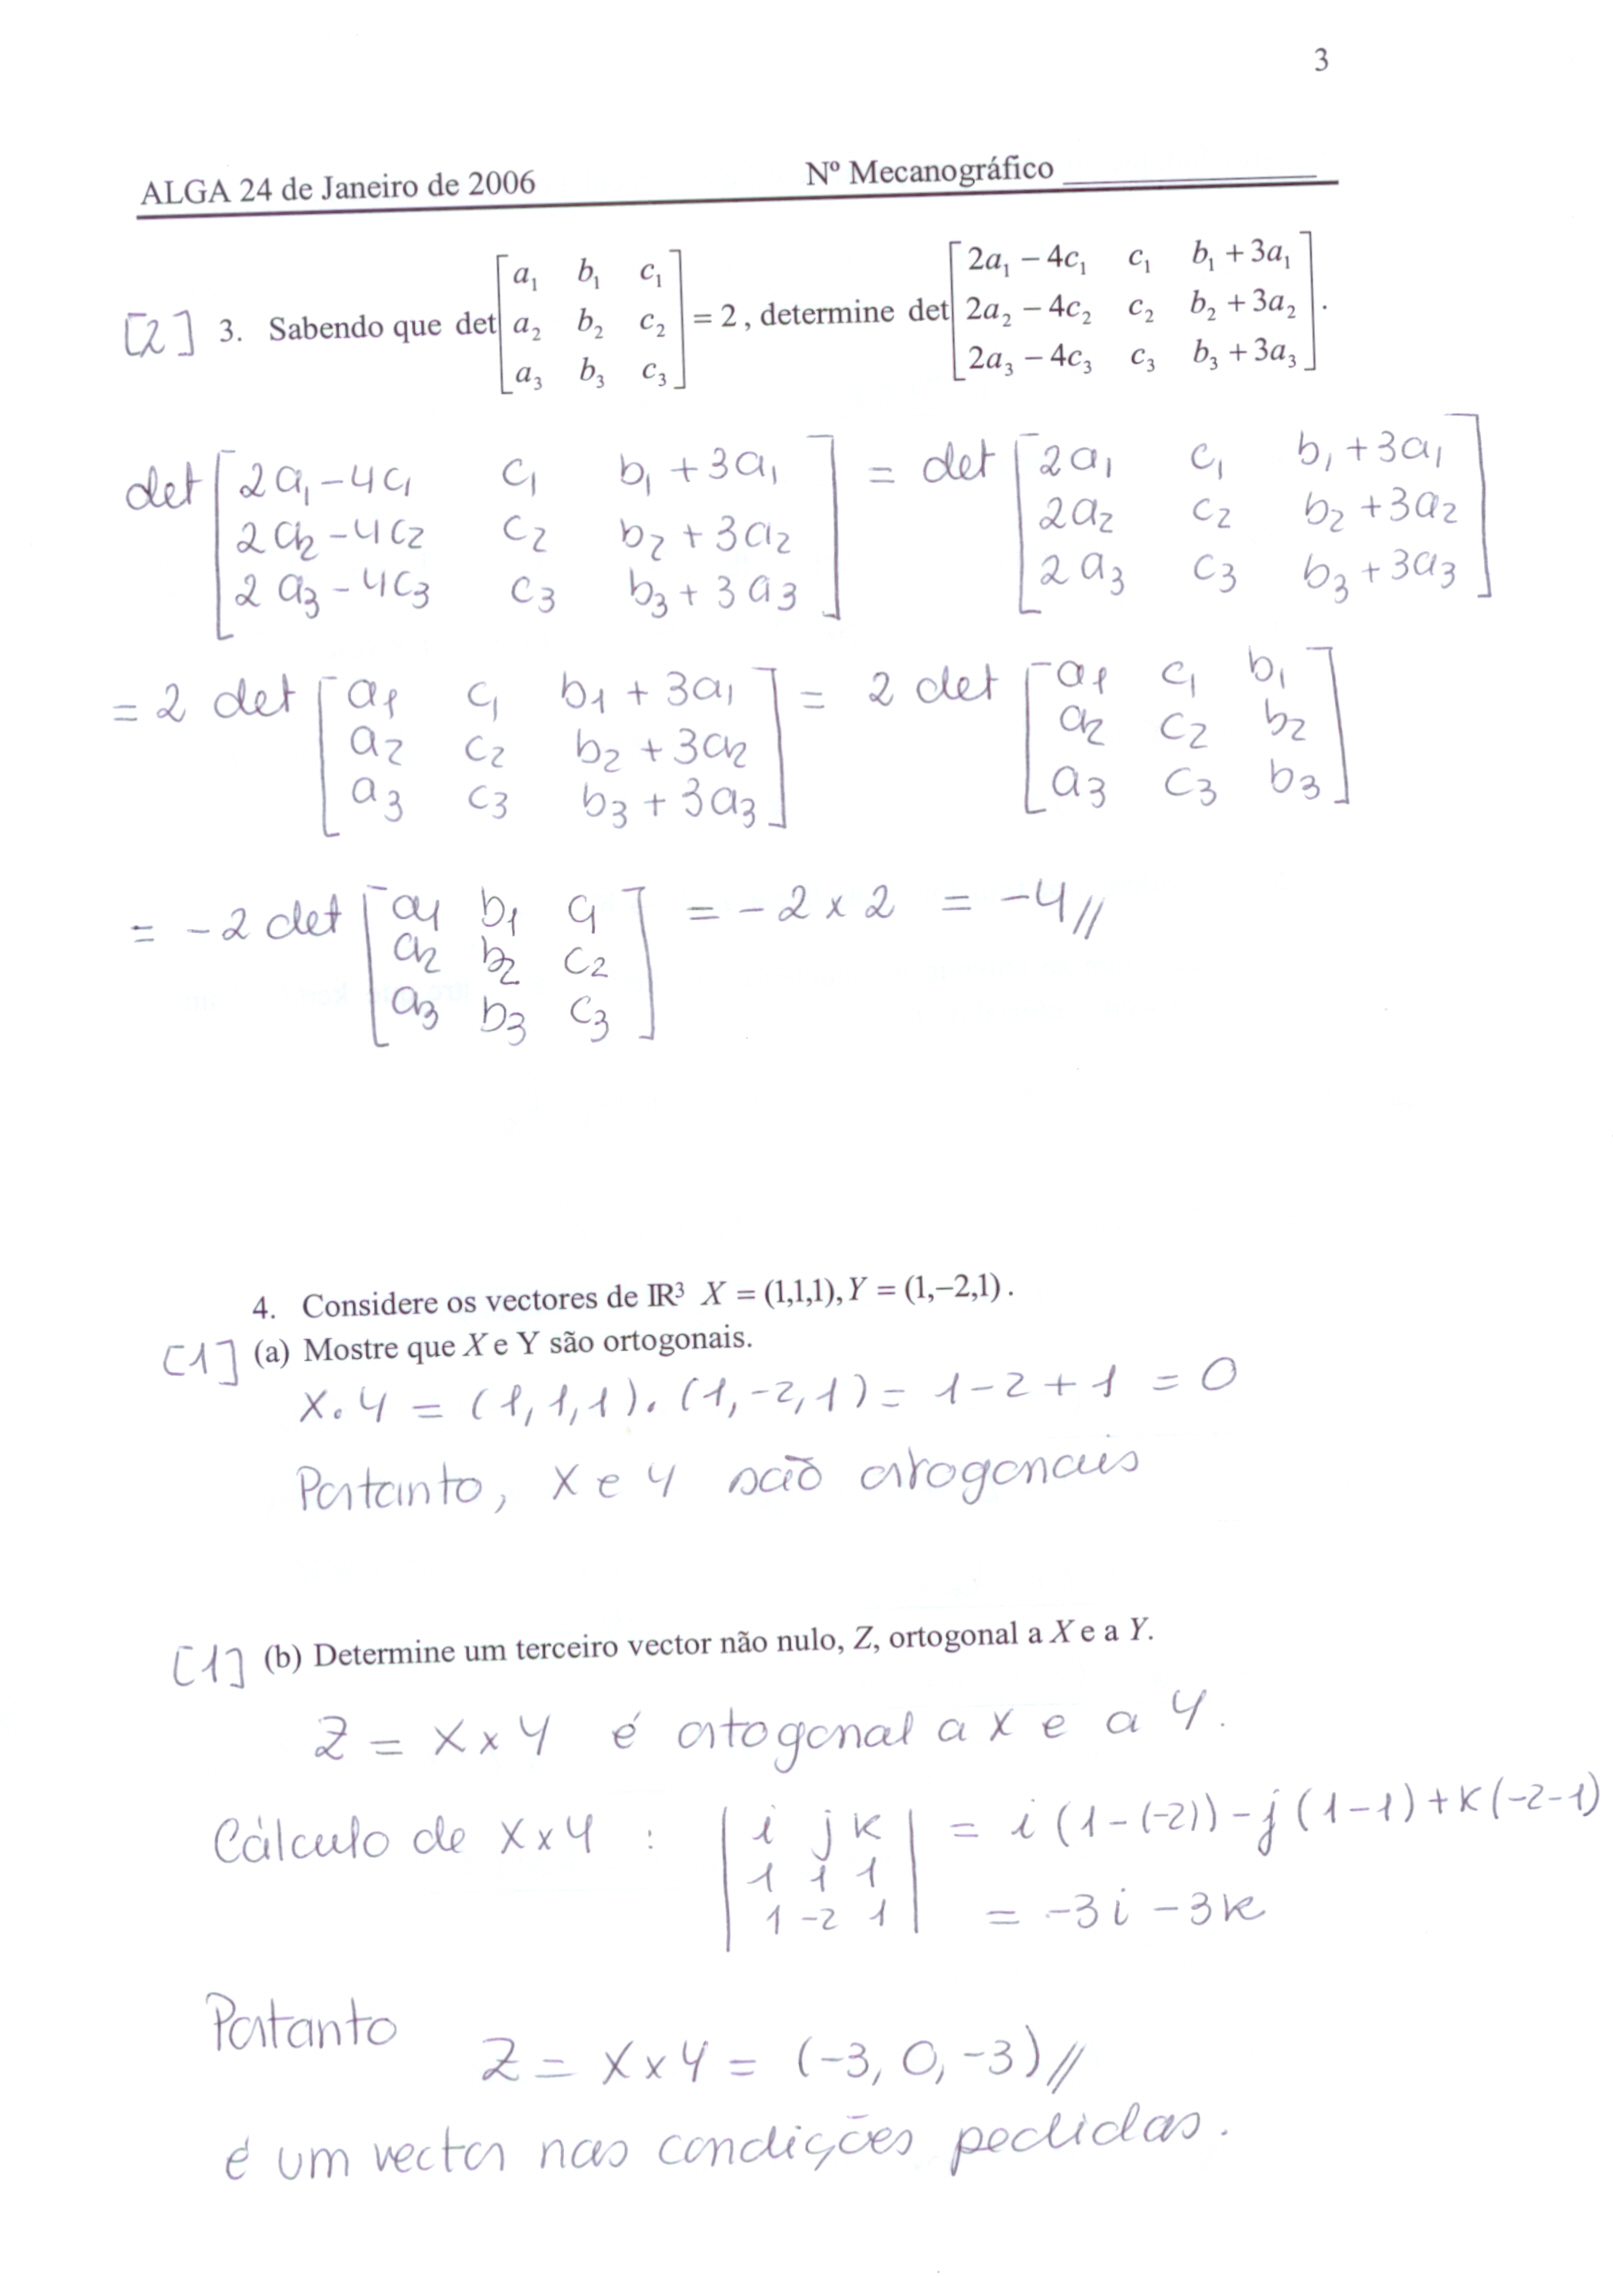 3
ALGA 24 de Janeiro de 2006 Nº Mecanográfico ___________
[2] 3. Sabendo que det [a₁ b₁ c₁; a₂ b₂ c₂; a₃ b₃ c₃] = 2, determine det [2a₁ − 4c₁ c₁ b₁ + 3a₁; 2a₂ − 4c₂ c₂ b₂ + 3a₂; 2a₃ − 4c₃ c₃ b₃ + 3a₃].
det [2a₁−4c₁ c₁ b₁ + 3a₁; 2a₂−4c₂ c₂ b₂ + 3a₂; 2a₃−4c₃ c₃ b₃ + 3a₃] = det [2a₁ c₁ b₁ + 3a₁; 2a₂ c₂ b₂ + 3a₂; 2a₃ c₃ b₃ + 3a₃]
= 2 det [a₁ c₁ b₁ + 3a₁; a₂ c₂ b₂ + 3a₂; a₃ c₃ b₃ + 3a₃] = 2 det [a₁ c₁ b₁; a₂ c₂ b₂; a₃ c₃ b₃]
= −2 det [a₁ b₁ c₁; a₂ b₂ c₂; a₃ b₃ c₃] = −2 × 2 = −4//
4. Considere os vectores de IR³ X = (1,1,1), Y = (1,−2,1).
[1] (a) Mostre que X e Y são ortogonais.
X.Y = (1,1,1).(1,−2,1) = 1−2+1 = 0
Portanto, X e Y são ortogonais
[1] (b) Determine um terceiro vector não nulo, Z, ortogonal a X e a Y.
Z = X × Y é ortogonal a X e a Y.
Cálculo de X×Y : |i j k; 1 1 1; 1 −2 1| = i(1−(−2))−j(1−1)+k(−2−1)
= −3i −3k
Portanto
Z = X×Y = (−3, 0, −3)//
é um vector nas condições pedidas.